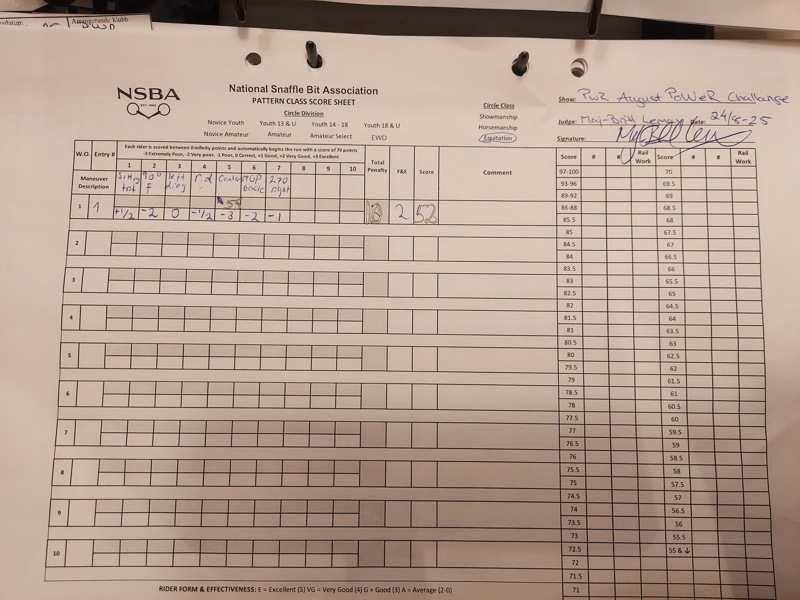 Arrangerande klubb
NSBA
National Snaffle Bit Association
PATTERN CLASS SCORE SHEET
Circle Division
Novice Youth Youth 13 & U Youth 14 - 18 Youth 18 & U
Novice Amateur Amateur Amateur Select EWD
Circle Class
Showmanship
Horsemanship
Equitation
Show: PwR August PoWeR Challange
Judge: Maj-Britt Date: 24/8-25
Signature:
W.O. Entry # Each rider is scored between 0-infinity points and automatically begins the run with a score of 70 points
-3 Extremely Poor, -2 Very poor, -1 Poor, 0 Correct, +1 Good, +2 Very Good, +3 Excellent
1 2 3 4 5 6 7 8 9 10
Total Penalty F&E Score Comment
Maneuver Description 90° left diag 270 right
1 1 +1/2 -2 0 -1/2 -3 -2 -1 2 52
2
3
4
5
6
7
8
9
10
Score # # Rail Work Score # # Rail Work
97-100 70
93-96 69.5
89-92 69
86-88 68.5
85.5 68
85 67.5
84.5 67
84 66.5
83.5 66
83 65.5
82.5 65
82 64.5
81.5 64
81 63.5
80.5 63
80 62.5
79.5 62
79 61.5
78.5 61
78 60.5
77.5 60
77 59.5
76.5 59
76 58.5
75.5 58
75 57.5
74.5 57
74 56.5
73.5 56
73 55.5
72.5 55 & ↓
72
71.5
71
RIDER FORM & EFFECTIVENESS: E = Excellent (5) VG = Very Good (4) G = Good (3) A = Average (2-0)